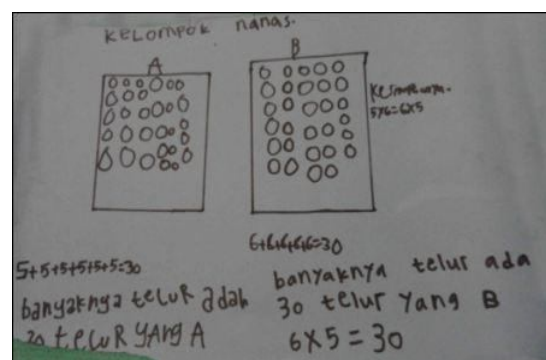 Kelompok nanas.
A
B
Kesimpulannya.
5x6=6x5
5+5+5+5+5+5=30
banyaknya teluR adah
30 teluR YANg A
6+6+6+6+6=30
banyaknya telur ada
30 telur Yang B
6X5=30